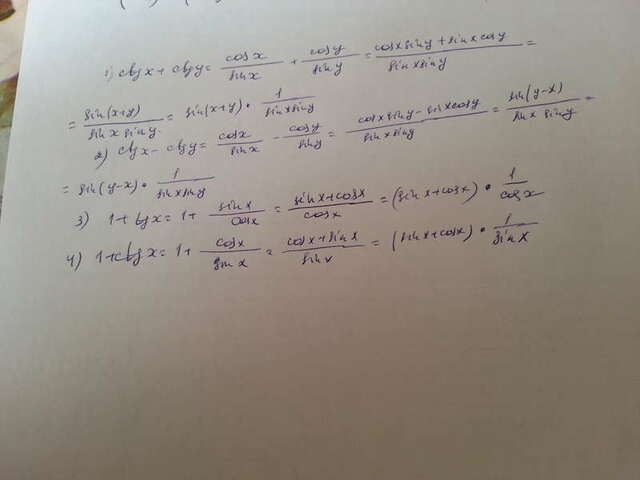 1) ctg x + ctg y = cos x / sin x + cos y / sin y = cos x sin y + sin x cos y / sin x sin y =
= sin(x+y) / sin x sin y = sin(x+y) · 1 / sin x sin y
2) ctg x - ctg y = cos x / sin x - cos y / sin y = cos x sin y - sin x cos y / sin x sin y = sin(y-x) / sin x sin y =
= sin(y-x) · 1 / sin x sin y
3) 1 + tg x = 1 + sin x / cos x = sin x + cos x / cos x = (sin x + cos x) · 1 / cos x
4) 1 + ctg x = 1 + cos x / sin x = cos x + sin x / sin x = (sin x + cos x) · 1 / sin x